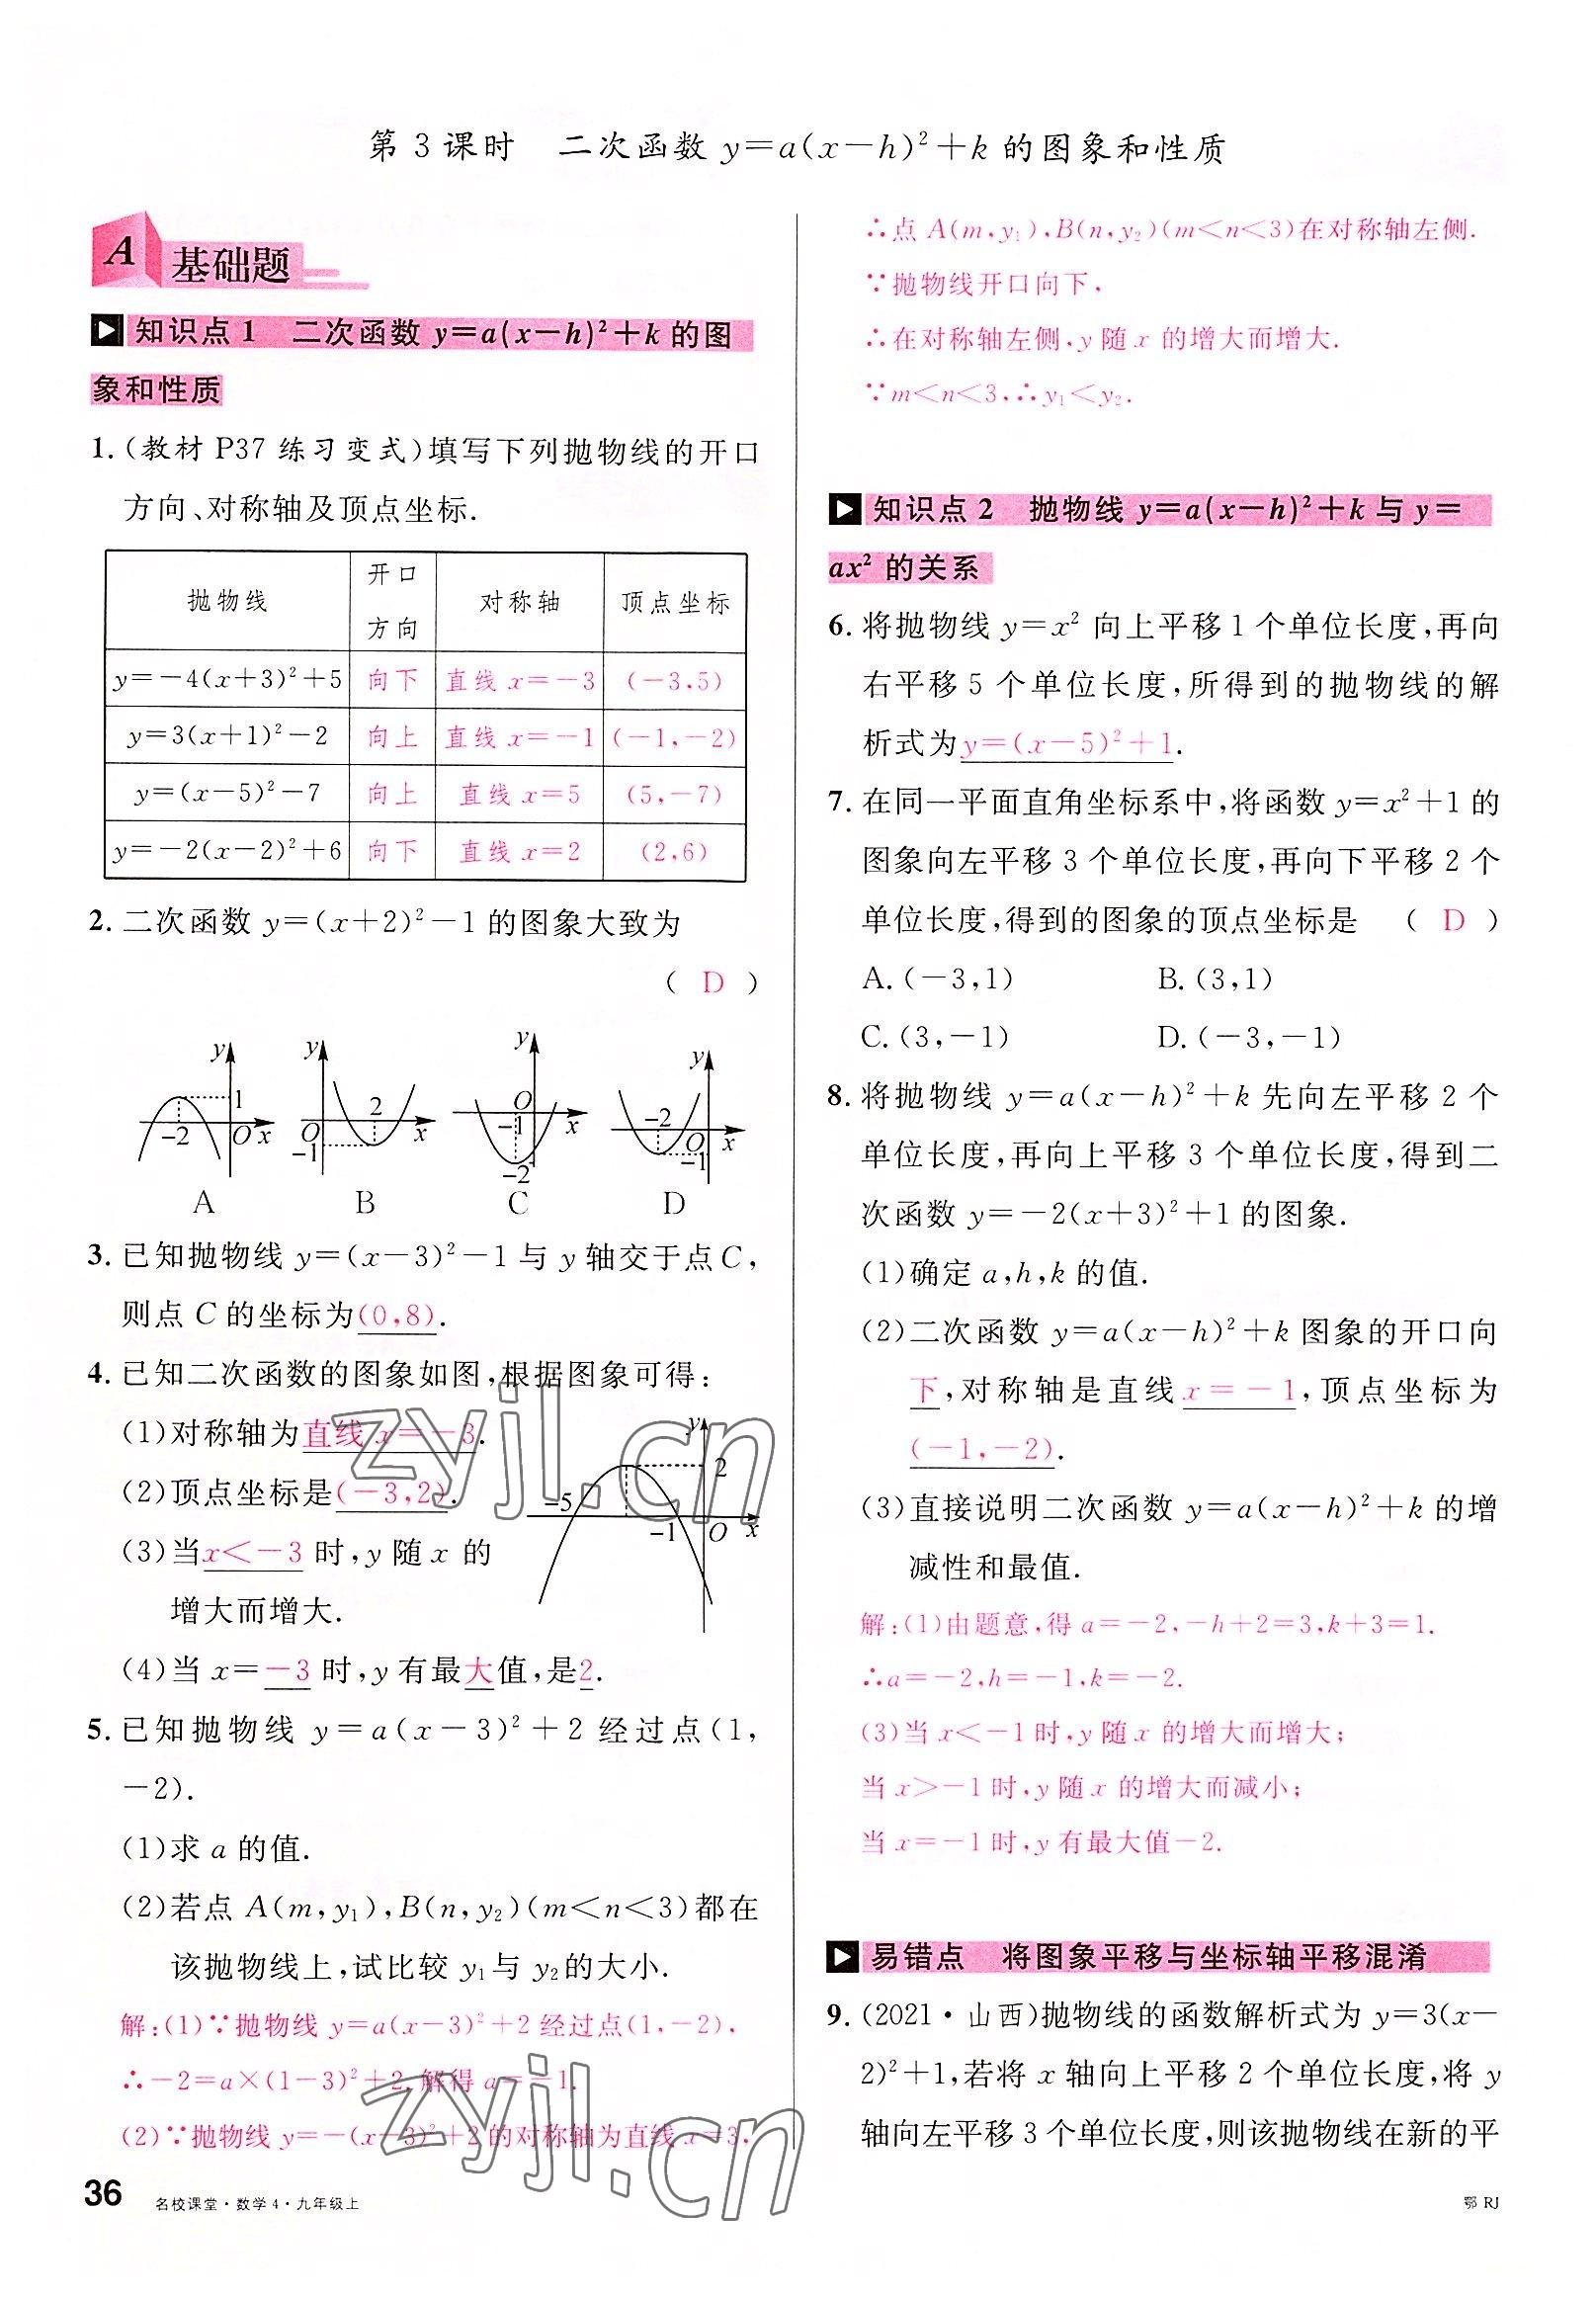 第 3 课时　二次函数 y=a(x-h)²+k 的图象和性质
A 基础题
知识点 1　二次函数 y=a(x-h)²+k 的图
象和性质
1.(教材 P37 练习变式)填写下列抛物线的开口
方向、对称轴及顶点坐标.
抛物线　开口方向　对称轴　顶点坐标
y=-4(x+3)²+5　向下　直线 x=-3　(-3,5)
y=3(x+1)²-2　向上　直线 x=-1　(-1,-2)
y=(x-5)²-7　向上　直线 x=5　(5,-7)
y=-2(x-2)²+6　向下　直线 x=2　(2,6)
2. 二次函数 y=(x+2)²-1 的图象大致为
( D )
y 1 -2 O x
y 2 O x -1
y O -1 x -2
y -2 O x -1
A　B　C　D
3. 已知抛物线 y=(x-3)²-1 与 y 轴交于点 C,
则点 C 的坐标为(0,8).
4. 已知二次函数的图象如图,根据图象可得:
(1)对称轴为直线 x=-3.
(2)顶点坐标是(-3,2).
(3)当x<-3 时,y 随 x 的
增大而增大.
y 2 -5 -1 O x
(4)当 x=-3 时,y 有最大值,是2.
5. 已知抛物线 y=a(x-3)²+2 经过点(1,
-2).
(1)求 a 的值.
(2)若点 A(m,y₁),B(n,y₂)(m<n<3)都在
该抛物线上,试比较 y₁与 y₂的大小.
解:(1)∵抛物线 y=a(x-3)²+2 经过点(1,-2),
∴-2=a×(1-3)²+2,解得 a=-1.
(2)∵抛物线 y=-(x-3)²+2 的对称轴为直线 x=3,
∴点 A(m,y₁),B(n,y₂)(m<n<3)在对称轴左侧.
∵抛物线开口向下,
∴在对称轴左侧,y 随 x 的增大而增大.
∵m<n<3,∴y₁<y₂.
知识点 2　抛物线 y=a(x-h)²+k 与 y=
ax² 的关系
6. 将抛物线 y=x² 向上平移 1 个单位长度,再向
右平移 5 个单位长度,所得到的抛物线的解
析式为y=(x-5)²+1.
7. 在同一平面直角坐标系中,将函数 y=x²+1 的
图象向左平移 3 个单位长度,再向下平移 2 个
单位长度,得到的图象的顶点坐标是　( D )
A.(-3,1)　B.(3,1)
C.(3,-1)　D.(-3,-1)
8. 将抛物线 y=a(x-h)²+k 先向左平移 2 个
单位长度,再向上平移 3 个单位长度,得到二
次函数 y=-2(x+3)²+1 的图象.
(1)确定 a,h,k 的值.
(2)二次函数 y=a(x-h)²+k 图象的开口向
下,对称轴是直线 x=-1,顶点坐标为
(-1,-2).
(3)直接说明二次函数 y=a(x-h)²+k 的增
减性和最值.
解:(1)由题意,得 a=-2,-h+2=3,k+3=1.
∴a=-2,h=-1,k=-2.
(3)当 x<-1 时,y 随 x 的增大而增大;
当 x>-1 时,y 随 x 的增大而减小;
当 x=-1 时,y 有最大值-2.
易错点　将图象平移与坐标轴平移混淆
9.(2021·山西)抛物线的函数解析式为 y=3(x-
2)²+1,若将 x 轴向上平移 2 个单位长度,将 y
轴向左平移 3 个单位长度,则该抛物线在新的平
zyjl.cn
zyjl.cn
36　名校课堂·数学 4·九年级上
鄂 RJ